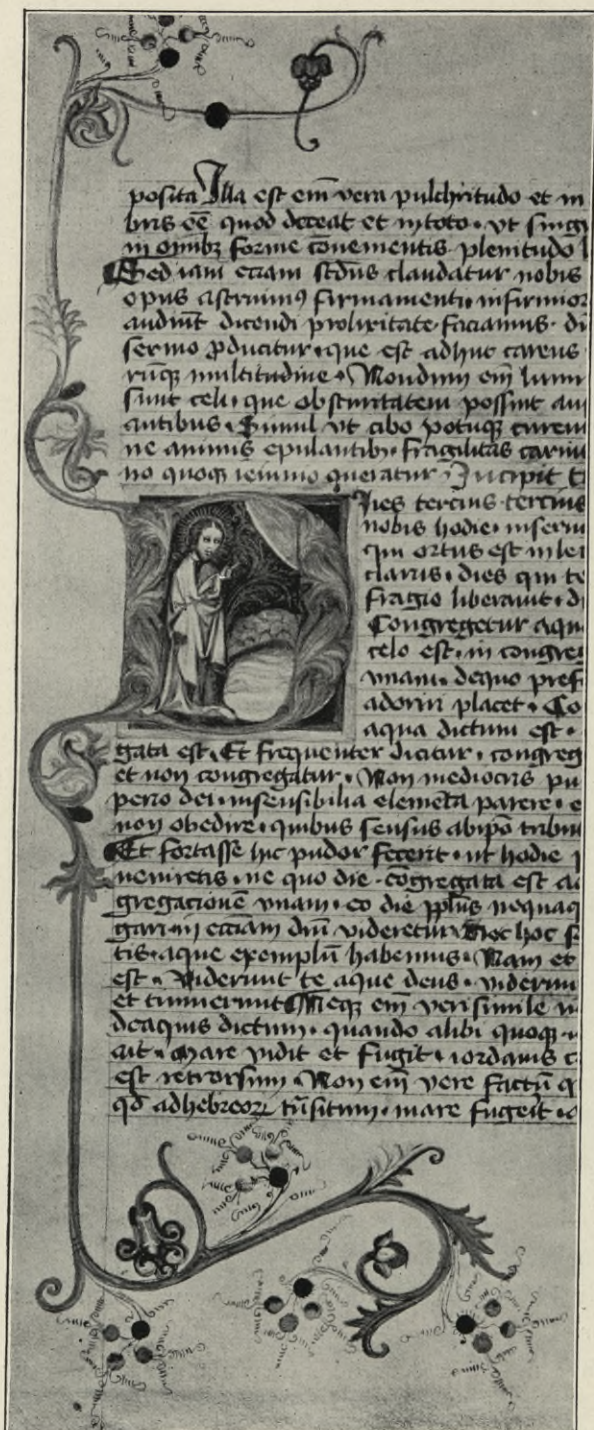 posita Illa est em̄ vera pulchritudo et in
bris eē quod deceat et in toto · vt singu
in omnibȝ forme cōuenientis plenitudo l
Sed iam etiam scd̄us claudatur nobis
opus astruimꝰ firmamenti · infirmior
audiūt dicendi prolixitate · faciamus · di
sermo ꝓducitur · que est adhuc carens
rūqȝ multitudine · Mondum em̄ lumi
sunt celi · que obscuritatem possint au
antibus · Simul vt cibo potuqȝ curem
ne animis epulantibꝰ fragilitas carnis
no quoqȝ ieiunio queratur · Incipit t
Dies tercius · tercius
nobis hodie · in sermo
qui ortus est in lec
claris · dies qui te
fragio liberauit · di
Congregetur aqu
celo est · in congreg
vnam · de quo pref
adoriri placet · Co
aqua dictum est ·
gata est · Et frequenter dicitur · congreg
et non congregatur · Non mediocris pu
perio dei · insensibilia elemēta parere · e
non obedire · quibus sensus ab ip̄o tribu
Et fortasse hic pudor fecerit · ut hodie
neniretis · ne quo die · cōgregata est a
gregacionē vnam · eo die pp̄lus nequaq
gari in ecciam dn̄i videretur · Nec hoc s
tis · aque exemplū habemus · Nam et
est · Viderunt te aque deus · viderun
et timuerunt Neqȝ em̄ verisimile
de aquis dictum · quando alibi quoqȝ
ait · Mare vidit et fugit · iordanis c
est retrorsum · Non em̄ vere factū q
qd̄ ad hebreoꝝ trāsitum · mare fugerit · io